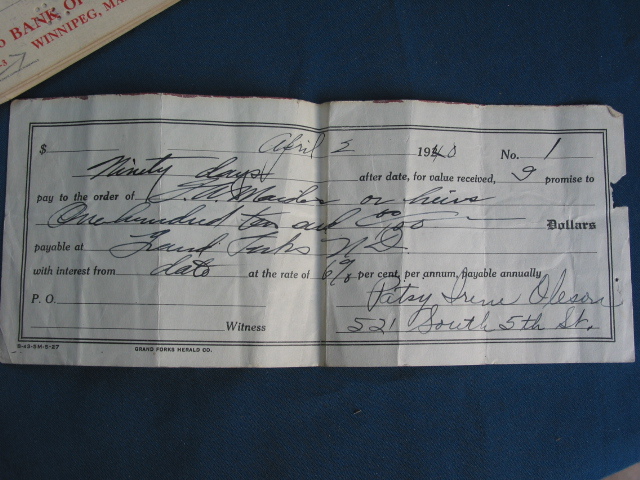 BANK OF
WINNIPEG, MA
$ April 2 1940 No. 1
Ninety days after date, for value received, I promise to
pay to the order of or heirs
One hundred ten and 00/100 Dollars
payable at Grand Forks N.D.
with interest from date at the rate of 6% per cent, per annum, payable annually
P. O. Pitsy Irene Oleson
Witness 521 South 5th St.
B-43-5M-5-27 GRAND FORKS HERALD CO.